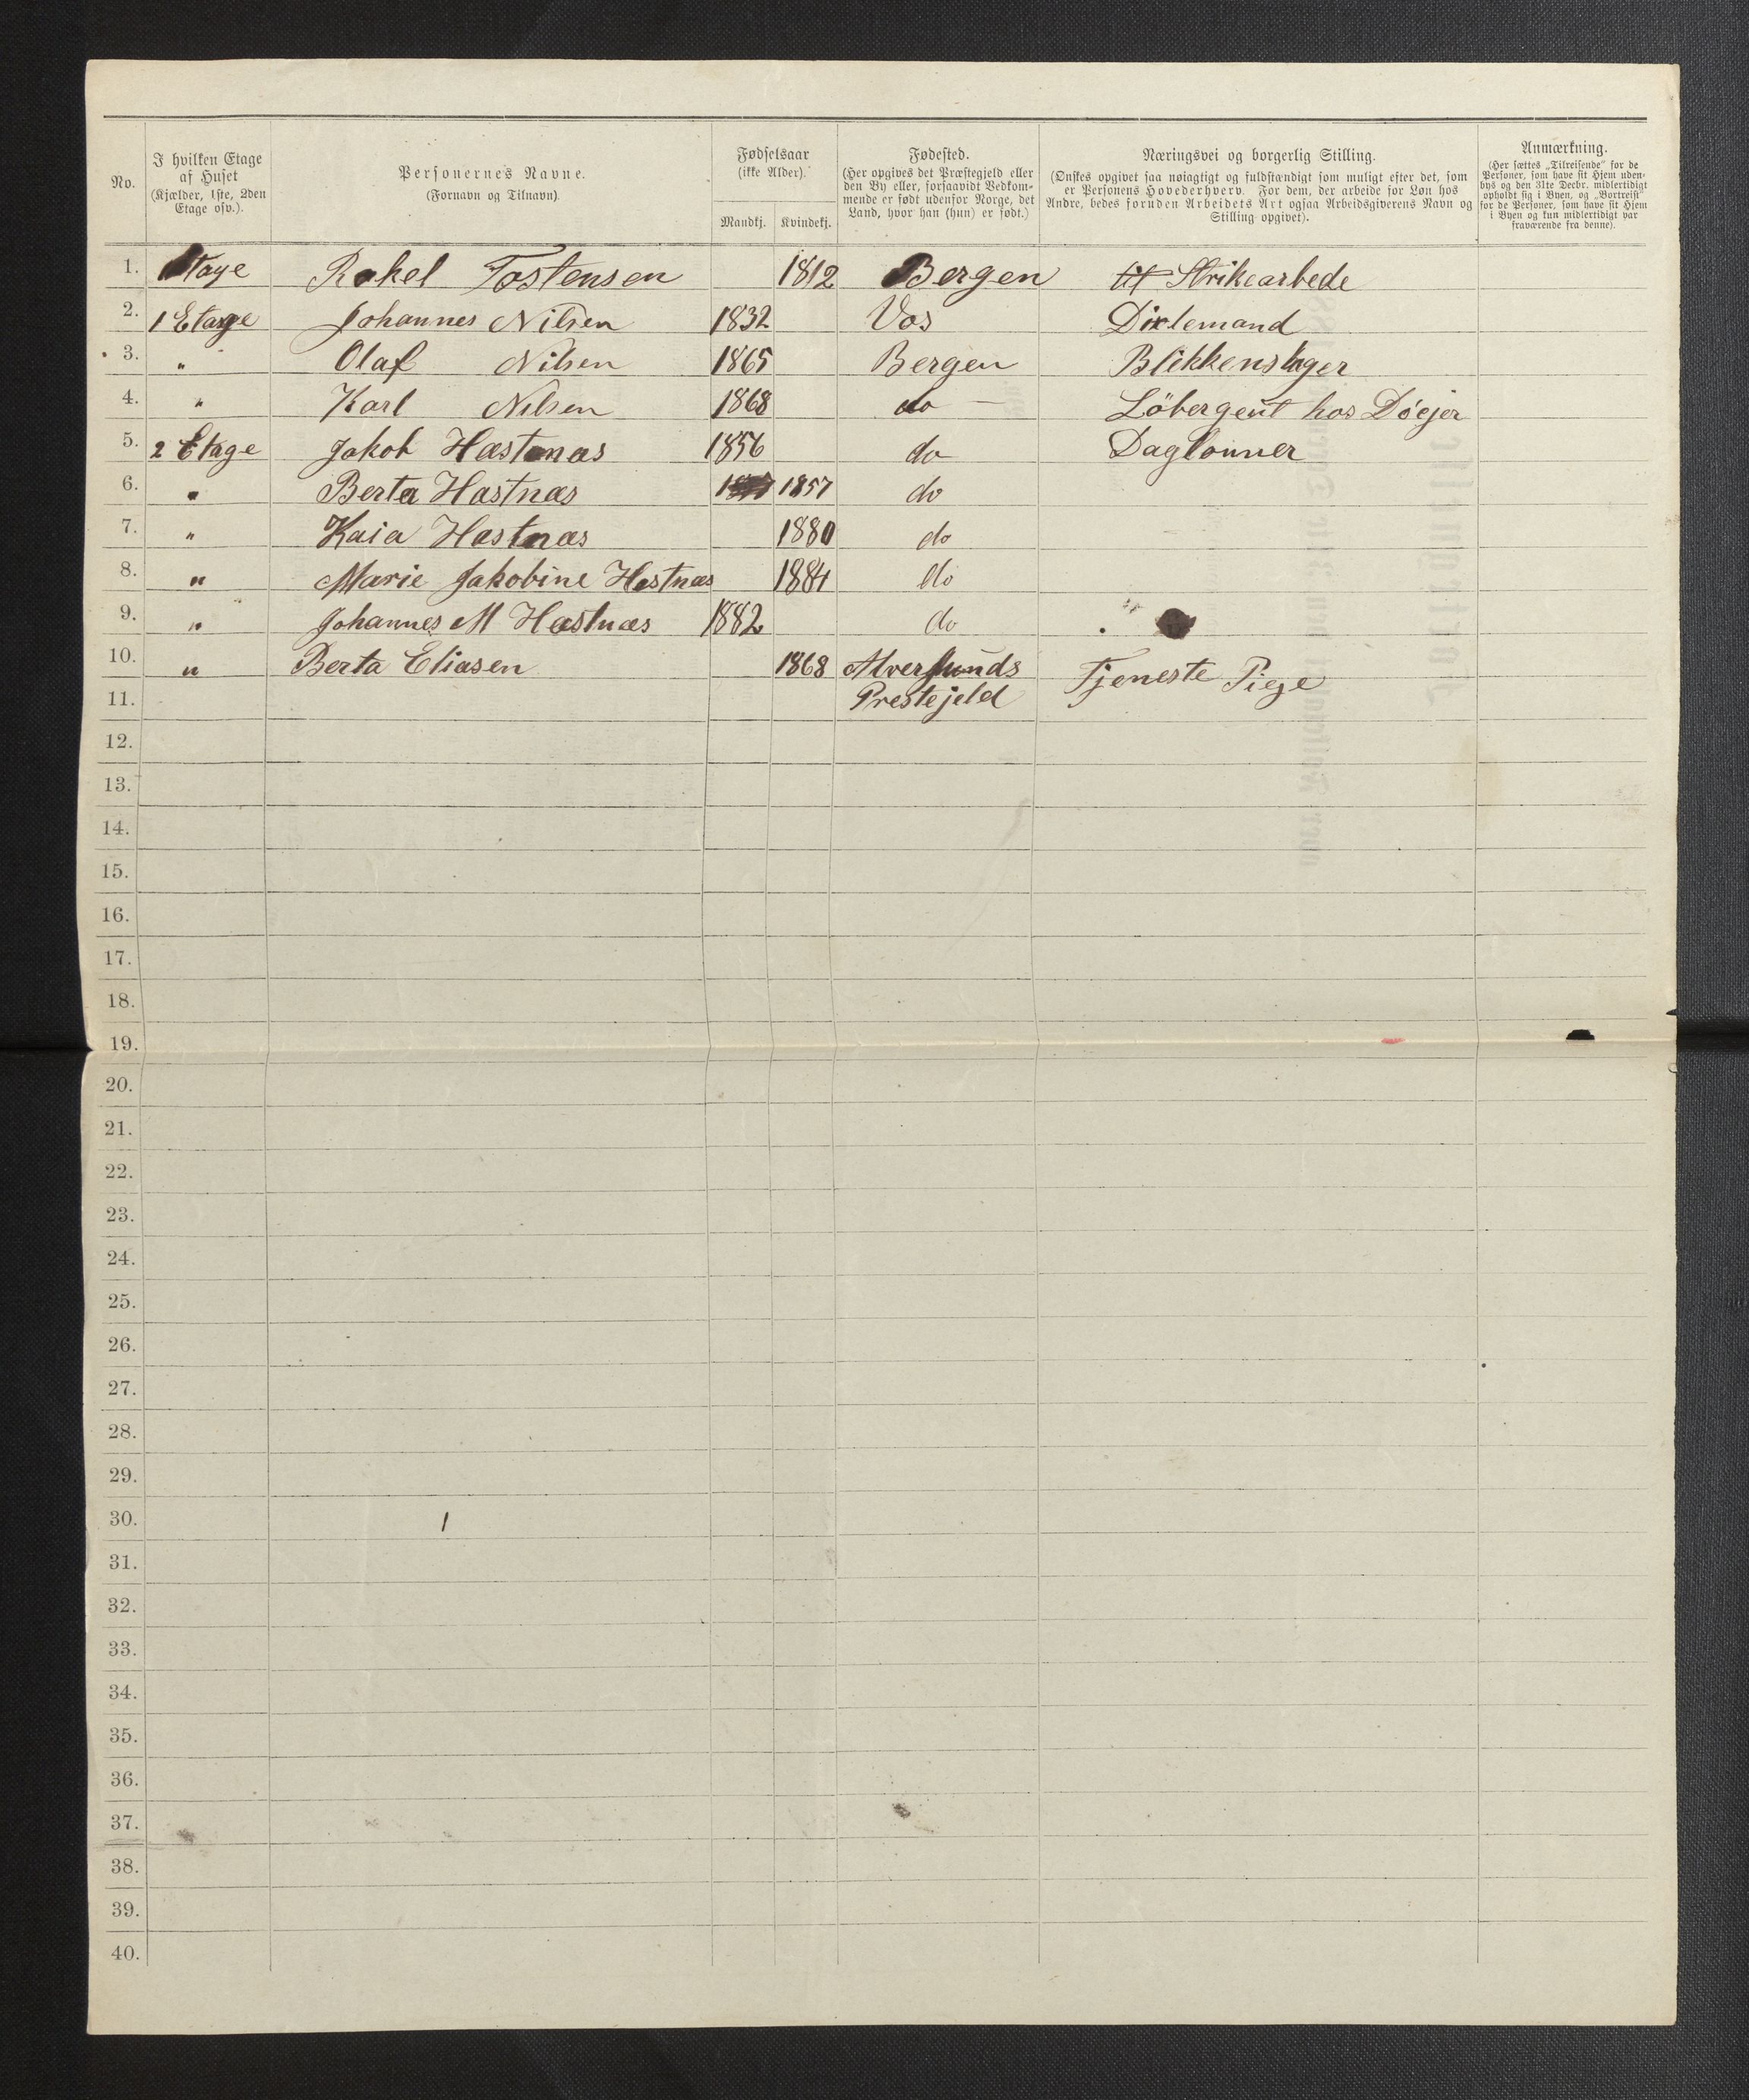 No.
I hvilken Etage
af Huset
(Kjælder, 1ste, 2den
Etage osv.).
Personernes Navne.
(Fornavn og Tilnavn).
Fødselsaar
(ikke Alder).
Mandkj. Kvindekj.
Fødested.
(Her opgives det Præstegjeld eller
den By eller, forsaavidt Vedkom-
mende er født udenfor Norge, det
Land, hvor han (hun) er født.)
Næringsvei og borgerlig Stilling.
(Ønskes opgivet saa nøiagtigt og fuldstændigt som muligt efter det, som
er Personens Hovederhverv. For dem, der arbeide for Løn hos
Andre, bedes foruden Arbeidets Art ogsaa Arbeidsgiverens Navn og
Stilling opgivet).
Anmærkning.
(Her sættes „Tilreisende" for de
Personer, som have sit Hjem uden-
bys og den 31te Decbr. midlertidigt
opholdt sig i Byen, og „Bortreist"
for de Personer, som have sit Hjem
i Byen og kun midlertidigt var
fraværende fra denne).
1. Etage Rakel Tostensen 1812 Bergen Strikearbede
2. 1 Etage Johannes Nilsen 1832 Vos Dixlemand
3. " Olaf Nilsen 1865 Bergen Blikkenslager
4. " Karl Nilsen 1868 do — Löbergeut hos Döejer
5. 2 Etage Jakob Hastnæs 1856 do Daglonner
6. " Berta Hastnæs 1857 do
7. " Kaia Hastnæs 1880 do
8. " Marie Jakobine Hastnæs 1884 do
9. " Johannes M Hastnæs 1882 do
10. " Berta Eliasen 1868 Alversunds Tjeneste Piege
11. Prestejeld
12.
13.
14.
15.
16.
17.
18.
19.
20.
21.
22.
23.
24.
25.
26.
27.
28.
29.
30.
31.
32.
33.
34.
35.
36.
37.
38.
39.
40.